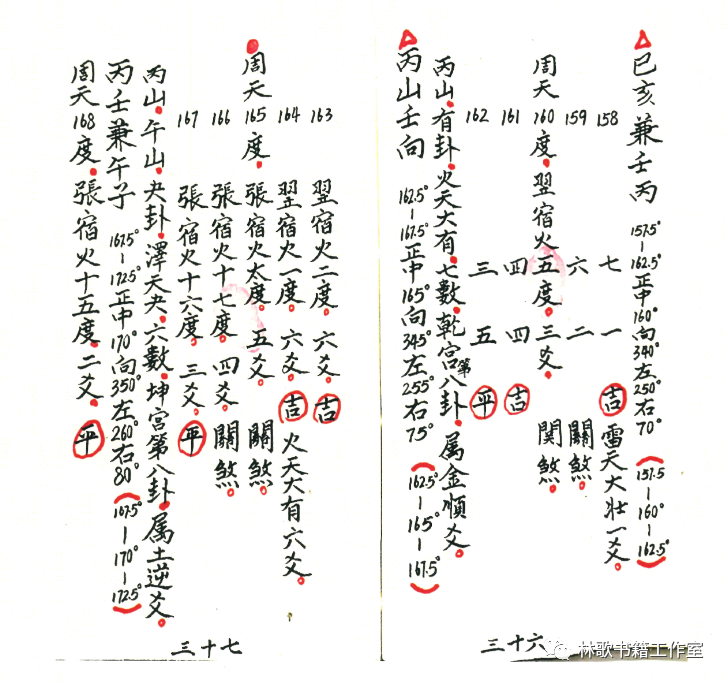 巳亥兼壬丙 157.5°–162.5°正中160°向340°左250°右70°(157.5–160°–162.5°)
158 七 一 吉 雷天大壯一爻。
159 六 二 關煞。
周天160度。翌宿火五度。三爻。関煞。
161 四 四 吉
162 三 五 平
丙山。有卦。火天大有。七數。乾宮第八卦。属金順爻。
丙山壬向 162.5°–167.5°正中165°向345°左255°右75°(162.5°–165°–167.5°)
三十六
163 翌宿火二度。六爻。吉
164 翌宿火一度。六爻。吉 火天大有六爻。
周天165度。張宿火太度。五爻。關煞。
166 張宿火十七度。四爻。關煞。
167 張宿火十六度。三爻。平
丙山。午山。夬卦。澤天夬。六數。坤宮第八卦。属土逆爻。
丙壬兼午子 167.5°–172.5°正中170°向350°左260°右80°(167.5°–170°–172.5°)
周天168度。張宿火十五度。二爻。平
三十七
林歌书籍工作室